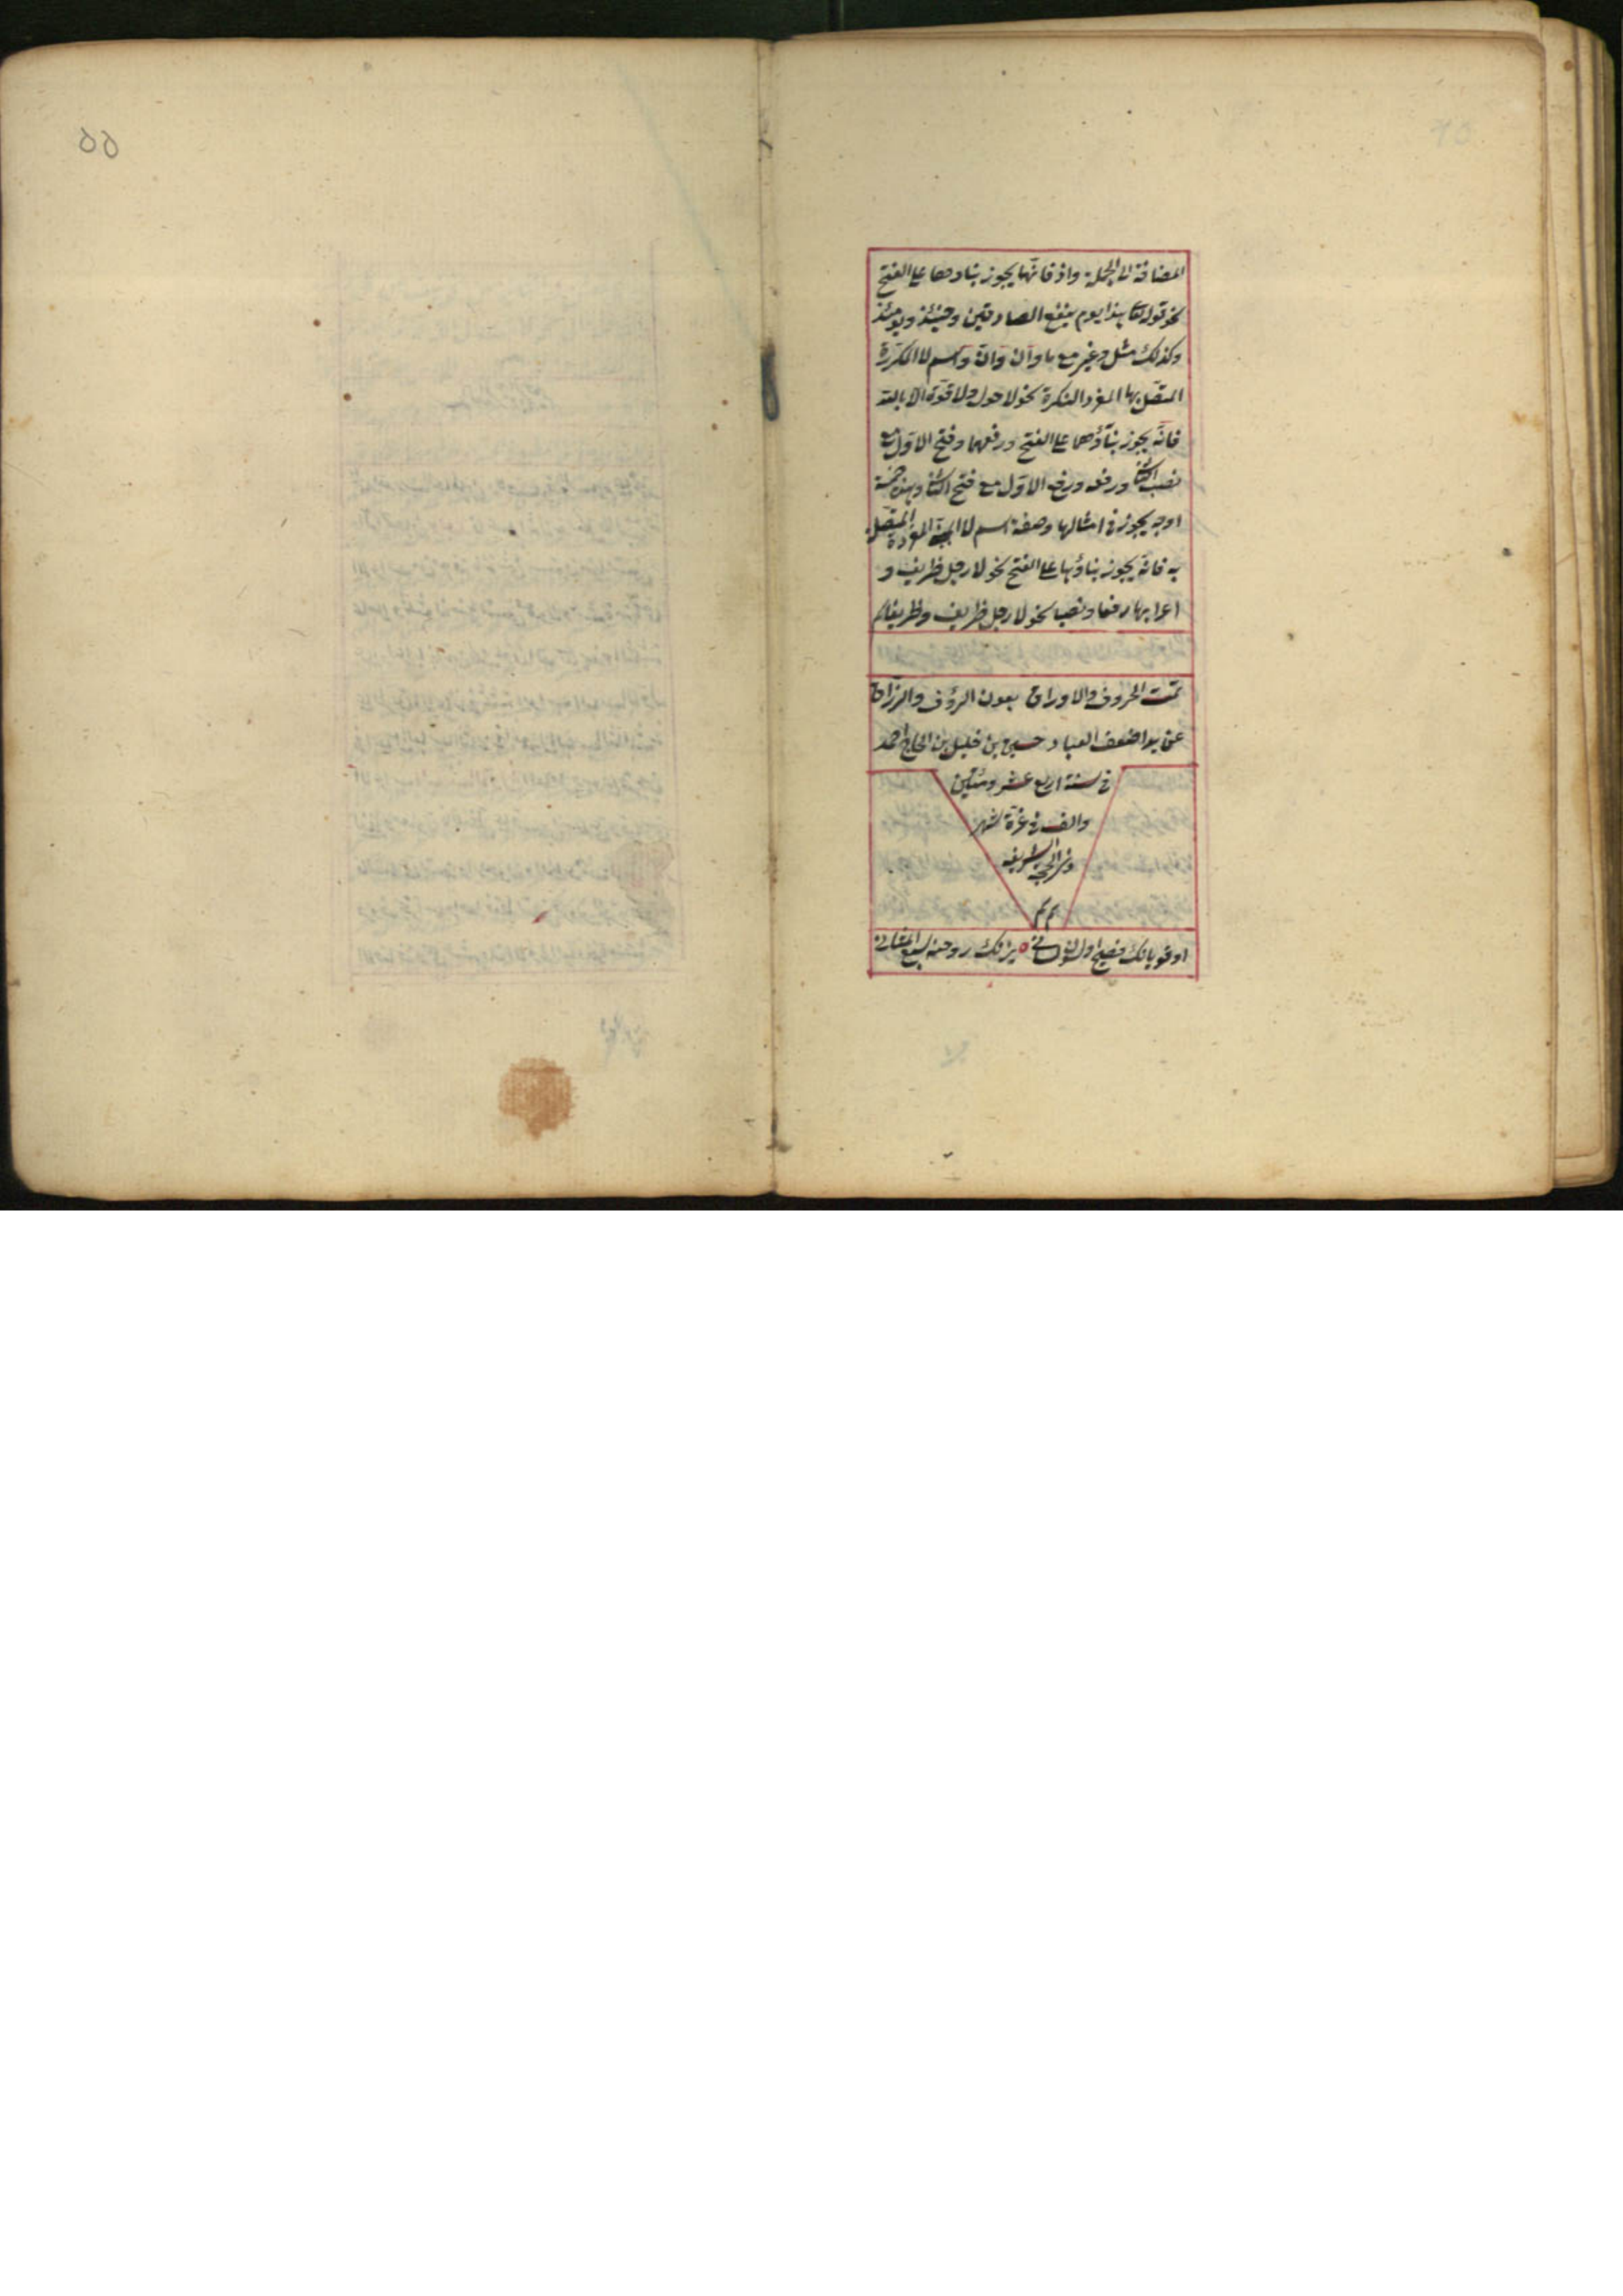 المضافة الى الجملة واذ فانها يجوز بناؤهما على الفتح
نحو قوله تعا هذا يوم ينفع الصادقين وحينئذ ويومئذ
وكذلك مثل وغير مع ما وان وانّ واسم لا المكررة
المتصل بها المفرد النكرة نحو لا حول ولا قوة الا بالله
فانّه يجوز بناؤهما على الفتح ورفعهما وفتح الاول مع
نصب الثا ورفعه ورفع الاول مع فتح الثا وهذه خمسة
اوجه يجوز في امثالها وصفة اسم لا المبنى المفردة المتصلة
به فانه يجوز بناؤها على الفتح نحو لا رجل ظريف و
اعرابها رفعا ونصبا نحو لا رجل ظريف وظريفا تم
تمت الحروف والاوراق بعون الرؤف والرزاق
عن يد اضعف العباد حسين بن خليل بن الحاج احمد
في سنة اربع عشر ومئتين
والف في غرة شهر
ذي الحجة الشريفه
تم تم
اوقويانك فصيح اولسون لسانى يزانك روحنه سبع المثانى